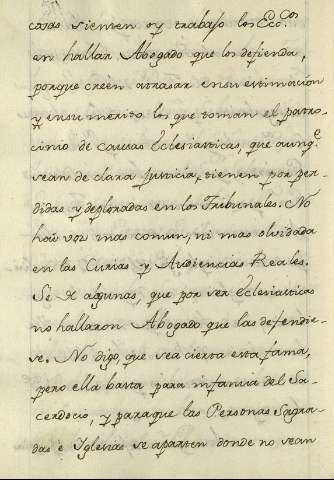 cosas sienten oy trabajo los Ecc.cos
en hallar Abogado que los defienda,
porque creèn atrasar en su estimacion
y en su merito los que toman el patro-
cinio de causas Eclesiasticas, que aunq.e
sean de clara Justicia, tienen por per-
didas y deploradas en los Tribunales. No
hai voz mas comun, ni mas olvidada
en las Curias y Audiencias Reales.
Se de algunas, que por ser Eclesiasticas
no hallaron Abogado que las defendie-
se. No digo, que sea cierta esta fama,
pero ella basta para infamia del Sa-
cerdocio, y para que las Personas Sagra-
das è Iglesias se aparten donde no sean